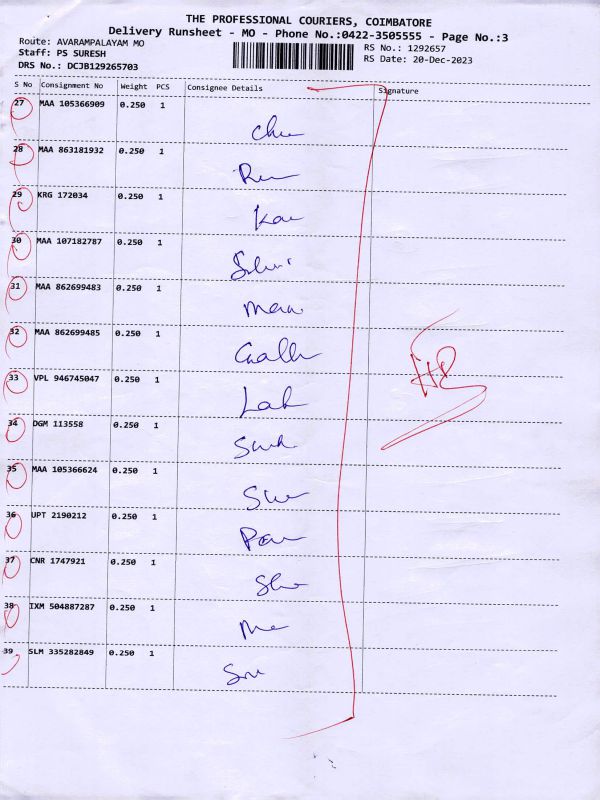 THE PROFESSIONAL COURIERS, COIMBATORE
Delivery Runsheet - MO - Phone No.:0422-3505555 - Page No.:3
Route: AVARAMPALAYAM MO
Staff: PS SURESH
DRS No.: DCJB129265703
RS No.: 1292657
RS Date: 20-Dec-2023
S No Consignment No Weight PCS Consignee Details Signature
27 MAA 105366909 0.250 1
28 MAA 863181932 0.250 1
29 KRG 172034 0.250 1
30 MAA 107182787 0.250 1
31 MAA 862699483 0.250 1
32 MAA 862699485 0.250 1
33 VPL 946745047 0.250 1
34 DGM 113558 0.250 1
35 MAA 105366624 0.250 1
36 UPT 2190212 0.250 1
37 CNR 1747921 0.250 1
38 IXM 504887287 0.250 1
39 SLM 335282849 0.250 1